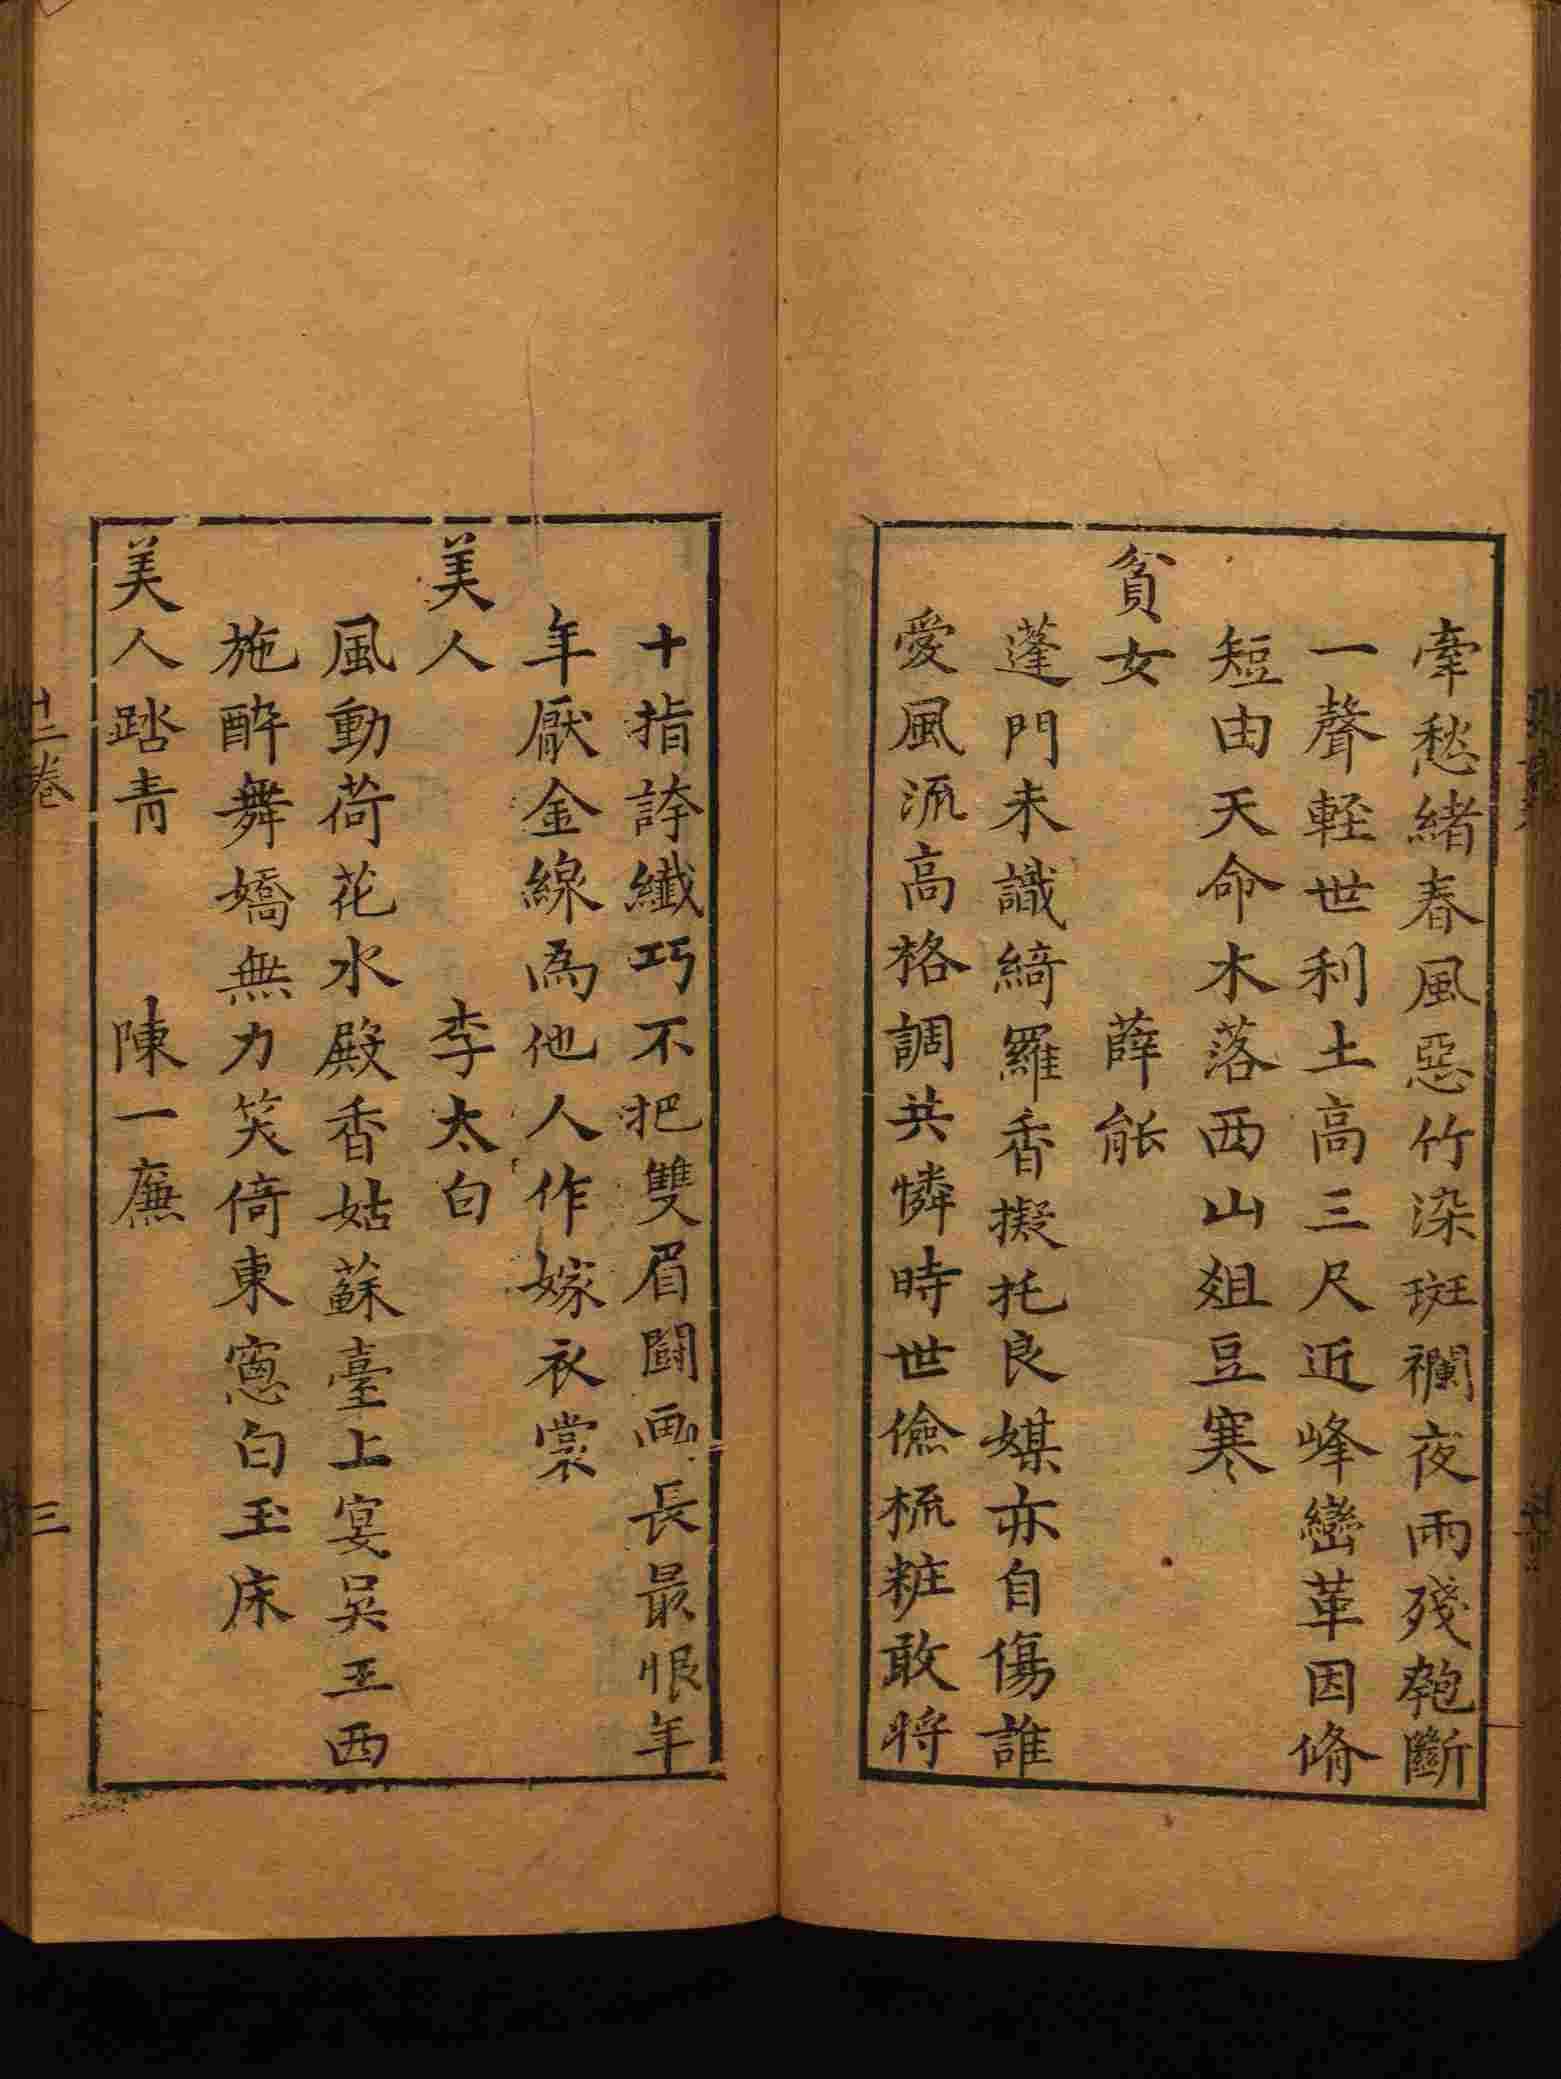 牽愁緒春風惡竹染斑斕夜雨殘匏斷
一聲軽世利土高三尺近峰巒革因脩
短由天命木落西山爼豆寒
貧女　薛能
蓬門未識綺羅香擬托良媒亦自傷誰
愛風流高格調共憐時世儉梳粧敢將
十指誇纖巧不把雙眉鬪画長最恨年
年厭金線為他人作嫁衣裳
美人　李太白
風動荷花水殿香姑蘇臺上宴吳王西
施醉舞嬌無力笑倚東窻白玉床
美人踏青　陳一廉
十三卷
三